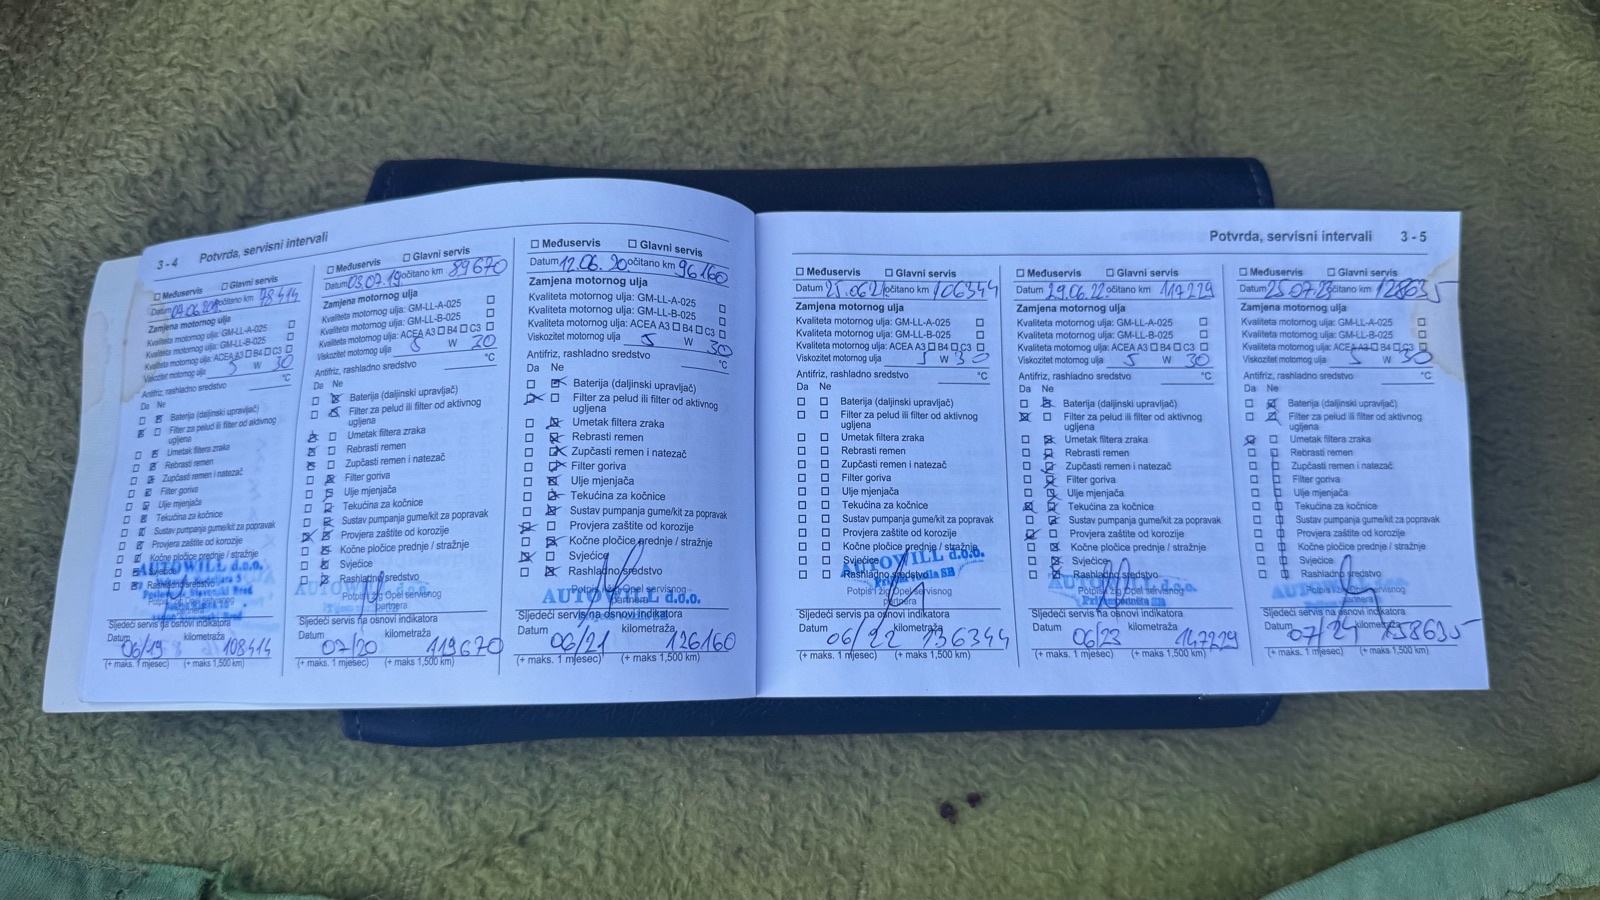 3 - 4 Potvrda, servisni intervali
☐ Međuservis ☐ Glavni servis
Datum očitano km 78414
Zamjena motornog ulja
Kvaliteta motornog ulja: GM-LL-A-025 ☐
Kvaliteta motornog ulja: GM-LL-B-025 ☐
Kvaliteta motornog ulja: ACEA A3 ☐ B4 ☐ C3 ☐
Viskozitet motornog ulja 5 W 30
Antifriz, rashladno sredstvo °C
Da Ne
Baterija (daljinski upravljač)
Filter za pelud ili filter od aktivnog
ugljena
Umetak filtera zraka
Rebrasti remen
Zupčasti remen i natezač
Filter goriva
Ulje mjenjača
Tekućina za kočnice
Sustav pumpanja gume/kit za popravak
Provjera zaštite od korozije
Kočne pločice prednje / stražnje
Svjećice
Rashladno sredstvo
AUTOWILL d.o.o.
Sljedeći servis na osnovi indikatora
Datum 06/19 kilometraža 108414
(+ maks. 1 mjesec) (+ maks. 1,500 km)
☐ Međuservis ☐ Glavni servis
Datum 03.07.19. očitano km 89670
Zamjena motornog ulja
Kvaliteta motornog ulja: GM-LL-A-025 ☐
Kvaliteta motornog ulja: GM-LL-B-025 ☐
Kvaliteta motornog ulja: ACEA A3 ☐ B4 ☐ C3 ☐
Viskozitet motornog ulja 5 W 30
Antifriz, rashladno sredstvo °C
Da Ne
Baterija (daljinski upravljač)
Filter za pelud ili filter od aktivnog
ugljena
Umetak filtera zraka
Rebrasti remen
Zupčasti remen i natezač
Filter goriva
Ulje mjenjača
Tekućina za kočnice
Sustav pumpanja gume/kit za popravak
Provjera zaštite od korozije
Kočne pločice prednje / stražnje
Svjećice
Rashladno sredstvo
Potpis i žig Opel servisnog
partnera
AUTOWILL d.o.o.
Sljedeći servis na osnovi indikatora
Datum 07/20 kilometraža 119670
(+ maks. 1 mjesec) (+ maks. 1,500 km)
☐ Međuservis ☐ Glavni servis
Datum 12.06.20 očitano km 96160
Zamjena motornog ulja
Kvaliteta motornog ulja: GM-LL-A-025 ☐
Kvaliteta motornog ulja: GM-LL-B-025 ☐
Kvaliteta motornog ulja: ACEA A3 ☐ B4 ☐ C3 ☐
Viskozitet motornog ulja 5 W 30
Antifriz, rashladno sredstvo °C
Da Ne
Baterija (daljinski upravljač)
Filter za pelud ili filter od aktivnog
ugljena
Umetak filtera zraka
Rebrasti remen
Zupčasti remen i natezač
Filter goriva
Ulje mjenjača
Tekućina za kočnice
Sustav pumpanja gume/kit za popravak
Provjera zaštite od korozije
Kočne pločice prednje / stražnje
Svjećice
Rashladno sredstvo
Potpis i žig Opel servisnog
AUTOWILL d.o.o.
Sljedeći servis na osnovi indikatora
Datum 06/21 kilometraža 126160
(+ maks. 1 mjesec) (+ maks. 1,500 km)
Potvrda, servisni intervali 3 - 5
☐ Međuservis ☐ Glavni servis
Datum 25.06.21. očitano km 106344
Zamjena motornog ulja
Kvaliteta motornog ulja: GM-LL-A-025 ☐
Kvaliteta motornog ulja: GM-LL-B-025 ☐
Kvaliteta motornog ulja: ACEA A3 ☐ B4 ☐ C3 ☐
Viskozitet motornog ulja 5 W 30
Antifriz, rashladno sredstvo °C
Da Ne
☐ ☐ Baterija (daljinski upravljač)
☐ ☐ Filter za pelud ili filter od aktivnog
ugljena
☐ ☐ Umetak filtera zraka
☐ ☐ Rebrasti remen
☐ ☐ Zupčasti remen i natezač
☐ ☐ Filter goriva
☐ ☐ Ulje mjenjača
☐ ☐ Tekućina za kočnice
☐ ☐ Sustav pumpanja gume/kit za popravak
☐ ☐ Provjera zaštite od korozije
☐ ☐ Kočne pločice prednje / stražnje
☐ ☐ Svjećice
☐ ☐ Rashladno sredstvo
AUTOWILL d.o.o.
Potpis i žig Opel servisnog
partnera
Sljedeći servis na osnovi indikatora
Datum 06/22 kilometraža 136344
(+ maks. 1 mjesec) (+ maks. 1,500 km)
☐ Međuservis ☐ Glavni servis
Datum 29.06.22. očitano km 117229
Zamjena motornog ulja
Kvaliteta motornog ulja: GM-LL-A-025 ☐
Kvaliteta motornog ulja: GM-LL-B-025 ☐
Kvaliteta motornog ulja: ACEA A3 ☐ B4 ☐ C3 ☐
Viskozitet motornog ulja 5 W 30
Antifriz, rashladno sredstvo °C
Da Ne
Baterija (daljinski upravljač)
Filter za pelud ili filter od aktivnog
ugljena
Umetak filtera zraka
Rebrasti remen
Zupčasti remen i natezač
Filter goriva
Ulje mjenjača
Tekućina za kočnice
Sustav pumpanja gume/kit za popravak
Provjera zaštite od korozije
Kočne pločice prednje / stražnje
Svjećice
Rashladno sredstvo
Potpis i žig Opel servisnog
partnera
Sljedeći servis na osnovi indikatora
Datum 06/23 kilometraža 147229
(+ maks. 1 mjesec) (+ maks. 1,500 km)
☐ Međuservis ☐ Glavni servis
Datum 25.07.23 očitano km 128635
Zamjena motornog ulja
Kvaliteta motornog ulja: GM-LL-A-025 ☐
Kvaliteta motornog ulja: GM-LL-B-025 ☐
Kvaliteta motornog ulja: ACEA A3 ☐ B4 ☐ C3 ☐
Viskozitet motornog ulja 5 W 30
Antifriz, rashladno sredstvo °C
Da Ne
Baterija (daljinski upravljač)
Filter za pelud ili filter od aktivnog
ugljena
Umetak filtera zraka
Rebrasti remen
Zupčasti remen i natezač
Filter goriva
Ulje mjenjača
Tekućina za kočnice
Sustav pumpanja gume/kit za popravak
Provjera zaštite od korozije
Kočne pločice prednje / stražnje
Svjećice
Rashladno sredstvo
Potpis i žig Opel servisnog
partnera
Sljedeći servis na osnovi indikatora
Datum 07/24 kilometraža 158635
(+ maks. 1 mjesec) (+ maks. 1,500 km)